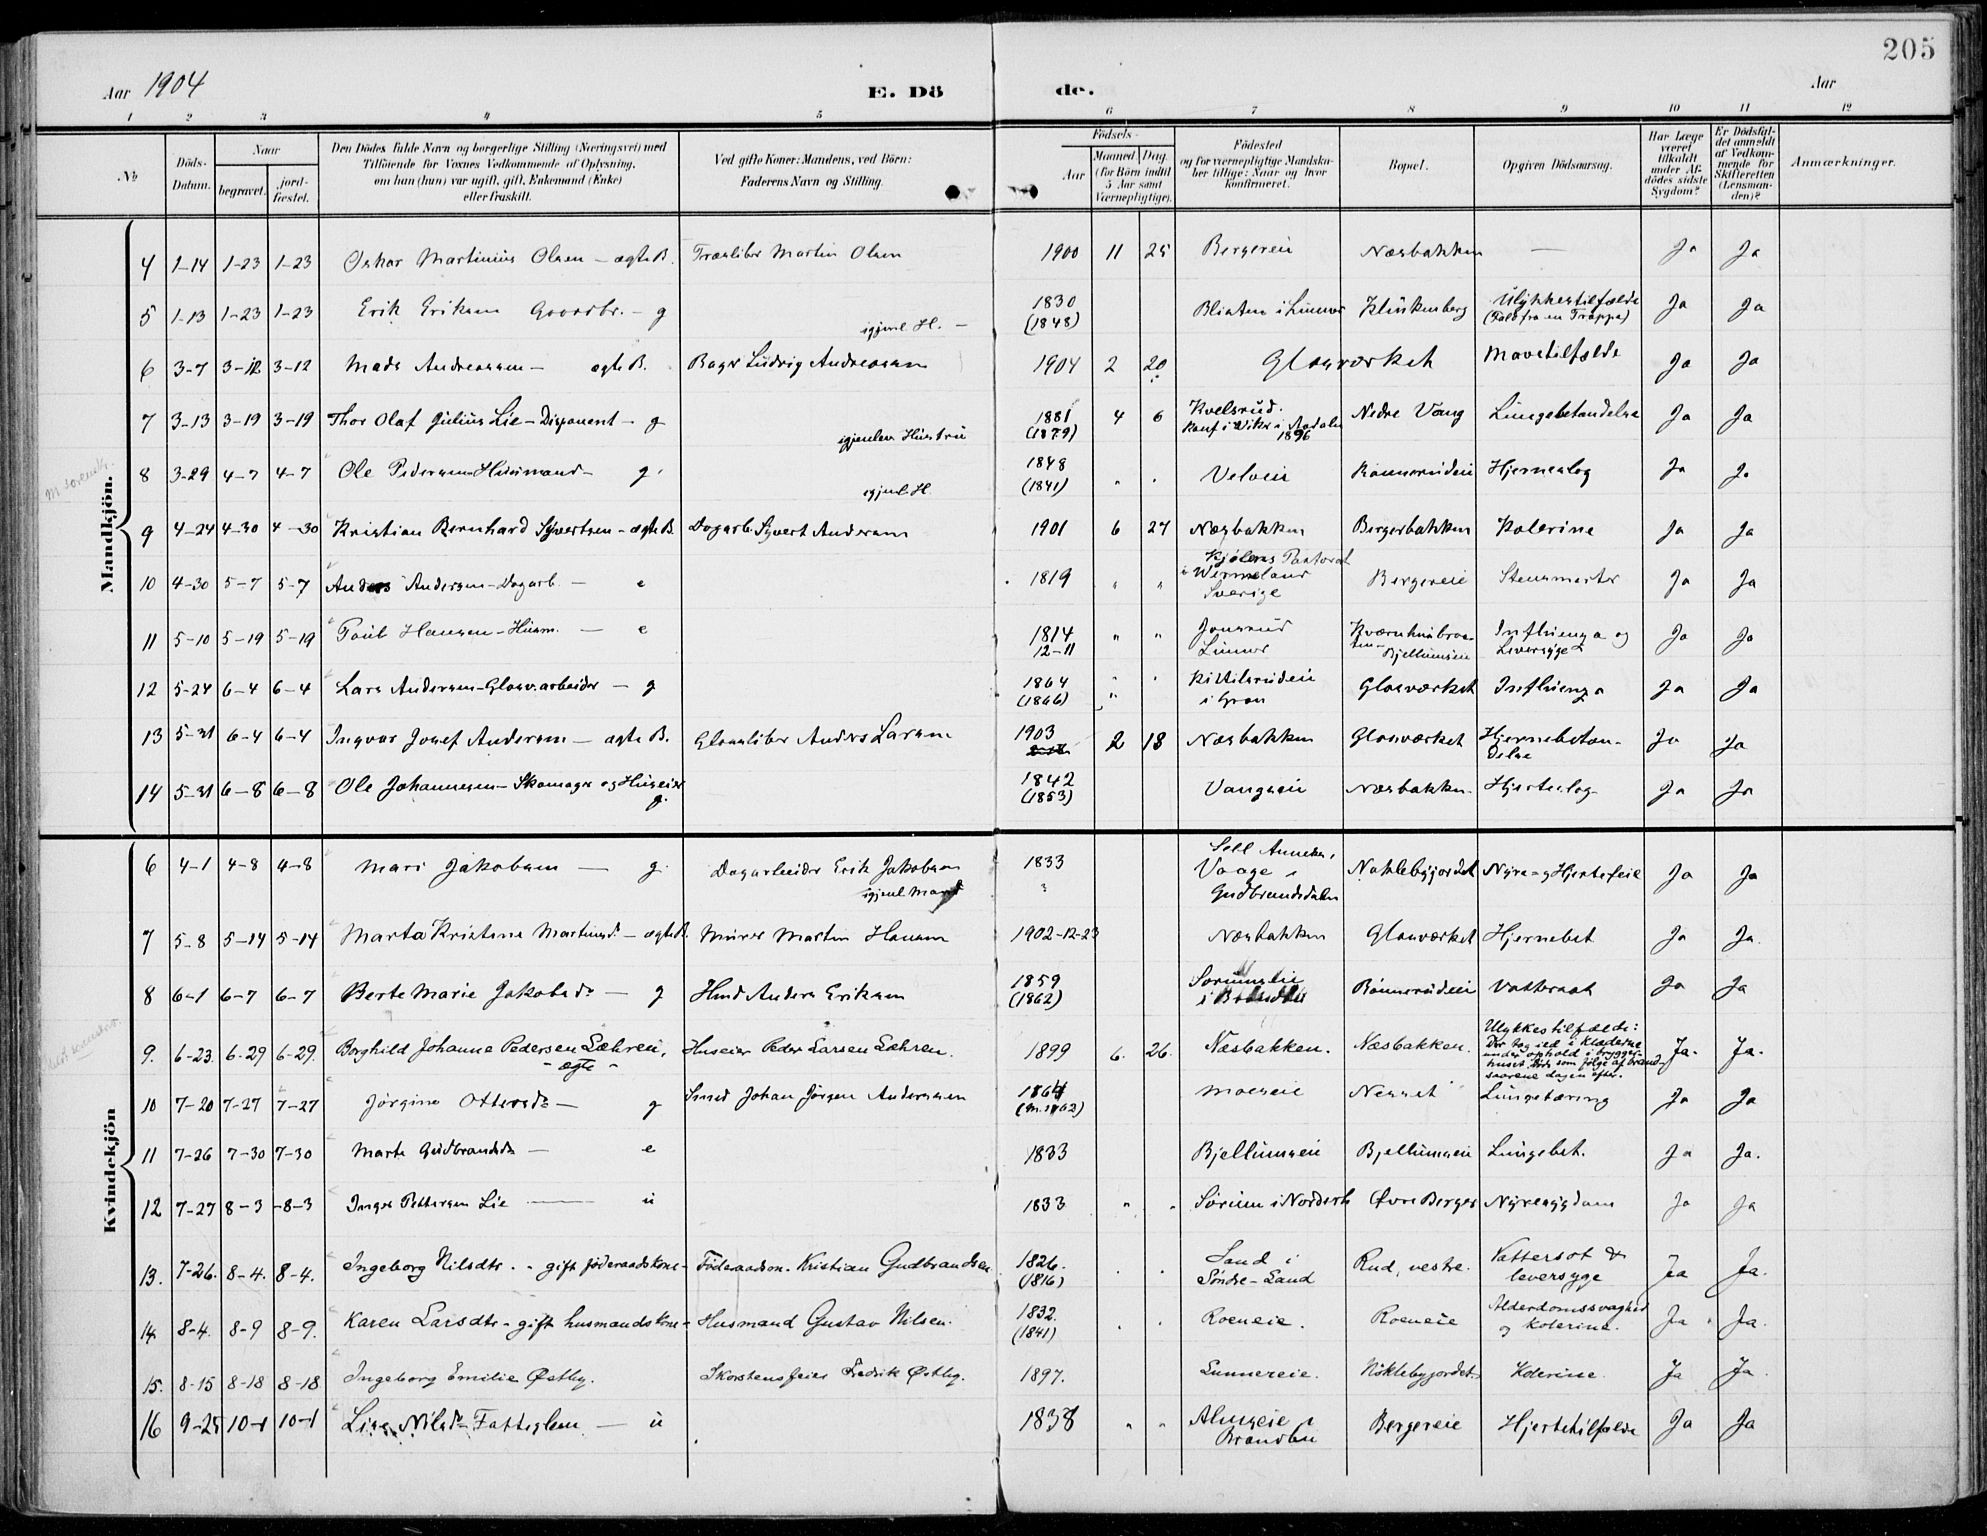 205
Aar 1904 E. Dö de. Aar
1 2 3 4 5 6 7 8 9 10 11 12
№ Döds-Datum. Naar begravet. jordfæstet. Den Dödes fulde Navn og borgerlige Stilling (Næringsvei) med Tilföiende for Voxnes Vedkommende af Oplysning, om han (hun) var ugift, gift, Enkemand (Enke) eller fraskilt. Ved gifte Koner: Mandens, ved Börn: Faderens Navn og Stilling. Födsels- Aar Maaned Dag. (for Börn indtil 5 Aar samt Værnepligtige). Födested og for værnepligtige Mandskaber tillige: Naar og hvor konfirmeret. Bopæl. Opgiven Dödsaarsag. Har Læge været tilkaldt under Afdödes sidste Sygdom? Er Dödsfaldet anmeldt af Vedkommende for Skifteretten (Lensmanden)? Anmærkninger.
Mandkjön.
4 1-14 1-23 1-23 Oskar Martinius Olsen – ægte B. Træsliber Martin Olsen 1900 11 25 Bergereie Næsbakken — Ja Ja
5 1-13 1-23 1-23 Erik Eriksen Gaardbr. – g igjenl. H. – 1830 (1848) i Lunner Klinkenberg Ulykkestilfælde (Fald fra en Trappe) Ja Ja
6 3-7 3-12 3-12 Mads Andreassen – ægte B. Bager Ludvig Andreassen 1904 2 20 Glasværket Mavetilfælde Ja Ja
7 3-13 3-19 3-19 Thor Olaf Julius Lie – Disponent – g igjenlev. Hustru 1881 (1879) 4 6 Kvelsrud. Konf i Viker i Aadalen 1896 Nedre Vang Lungebetændelse Ja Ja
8 3-29 4-7 4-7 Ole Pedersen Husmand – g. igjenl. H. 1848 (1841) " " Velseie Rønnerudeie Hjerneslag Ja Ja
9 4-24 4-30 4-30 Kristian Bernhard Syvertsen – ægte B. Dagarb. Syvert Andersen 1901 6 27 Næsbakken Bergerbakken Kolerine Ja Ja
10 4-30 5-7 5-7 Anders Andersen – Dagarb. – e 1819 " " Kjølens Pastorat i Wermeland Sverige Bergereie Stensmerter Ja Ja
11 5-10 5-19 5-19 Poul Hansen – Husm. – e 1814 12-11 " " Jonsrud Lunner Bjellumseie Influenza og Leversyge Ja Ja
12 5-24 6-4 6-4 Lars Andersen – Glasv.arbeider – g 1864 (1866) " " Kittilsrudeie i Gran Glasværket Influenza Ja Ja
13 5-31 6-4 6-4 Ingvar Josef Andersen – ægte B. Glassliber Anders Larsen 1903 2 18 Næsbakken Glasværket Hjernebetændelse Ja Ja
14 5-31 6-8 6-8 Ole Johannesen – Skomager og Huseier g. 1842 (1853) Vangseie Næsbakken. Hjerteslag Ja Ja
Kvindekjön
6 4-1 4-8 4-8 Mari Jakobsen — g. Dagarbeider Erik Jakobsen igjenl Mand 1833 Sell Anneks, Vaage i Gudbrandsdalen Nøklebyjordet Nyre- og Hjertefeil Ja Ja
7 5-8 5-14 5-14 Marta Kristine Martinsd. – ægte B. Murer Martin Hansen 1902-12-23 Næsbakken Glasværket Hjernebet. Ja Ja.
8 6-1 6-7 6-7 Berte Marie Jakobsdr. – g Husmd Anders Eriksen 1859 (1862) Sørumseie i Brandbu Rønnerudeie Vattersot Ja Ja
9. 6-23. 6-29 6-29. Borghild Johanne Pedersen Læhren, – ægte – Huseier Peder Larsen Læhren. 1899 6. 26. Næsbakken. Næsbakken. Ulykkestilfælde: Der tog ild i klæderne under ophold i bryggerhuset. Døde som følge af brandsaarene dagen efter. Ja. Ja.
10 7-20 7-27 7-27 Jørgine Ottersdr. – g Smed Johan Jörgen Anderssen 1864 (m. 1862) Moeseie Nesset Lungetæring Ja Ja
11 7-26 7-30 7-30 Marte Gudbrandsdr. – e 1833 Bjellumseie Bjellumseie Lungebet. Ja Ja.
12 7-27 8-3 8-3 Inger Pettersen Lie — u 1833 " " Sørum i Norderh. Øvre Berger Nyresygdom Ja Ja
13. 7-26. 8-4. 8-4. Ingeborg Nilsdtr. – gift föderaadskone – Föderaadsm. Kristian Gudbrandsen 1826. (1816) . . Land i Søndre-Land Rud, vestre. Vattersot & leversyge Ja Ja.
14. 8-4. 8-9 8-9. Karen Larsdtr – gift husmandskone – Husmand Gustav Nilsen. 1832. (1841) . . Roeneie. Roeneie Alderdomssvaghed og kolerine. Ja Ja.
15. 8-15 8-18 8-18 Ingeborg Emilie Østby. Skorstensfeier Fredrik Østby. 1897. Lunnereie. Nöklebyjordet. Kolerine. Ja Ja.
16 9-25 10-1 10-1 Lise Nilsdr. Fattiglem – u 1838 " " Almseie i Brandbu Bergereie Hjertetilfælde Ja Ja